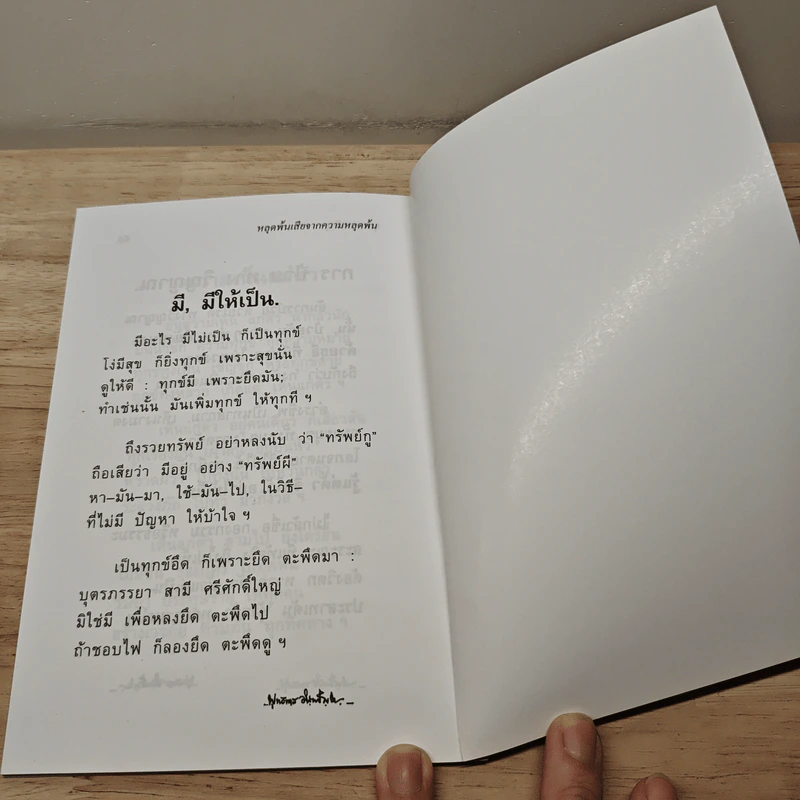 หลุดพ้นเสียจากความหลุดพ้น
มี, มีให้เป็น.
มีอะไร มีไม่เป็น ก็เป็นทุกข์
โง่มีสุข ก็ยิ่งทุกข์ เพราะสุขนั่น
ดูให้ดี : ทุกข์มี เพราะยึดมัน;
ทำเช่นนั้น มันเพิ่มทุกข์ ให้ทุกที ฯ
ถึงรวยทรัพย์ อย่าหลงนับ ว่า "ทรัพย์กู"
ถือเสียว่า มีอยู่ อย่าง "ทรัพย์ผี"
หา–มัน–มา, ใช้–มัน–ไป, ในวิธี–
ที่ไม่มี ปัญหา ให้บ้าใจ ฯ
เป็นทุกข์อืด ก็เพราะยึด ตะพึดมา :
บุตรภรรยา สามี ศรีศักดิ์ใหญ่
มิใช่มี เพื่อหลงยึด ตะพึดไป
ถ้าชอบไฟ ก็ลองยึด ตะพึดดู ฯ
พุทธทาส อินทปัญโญ